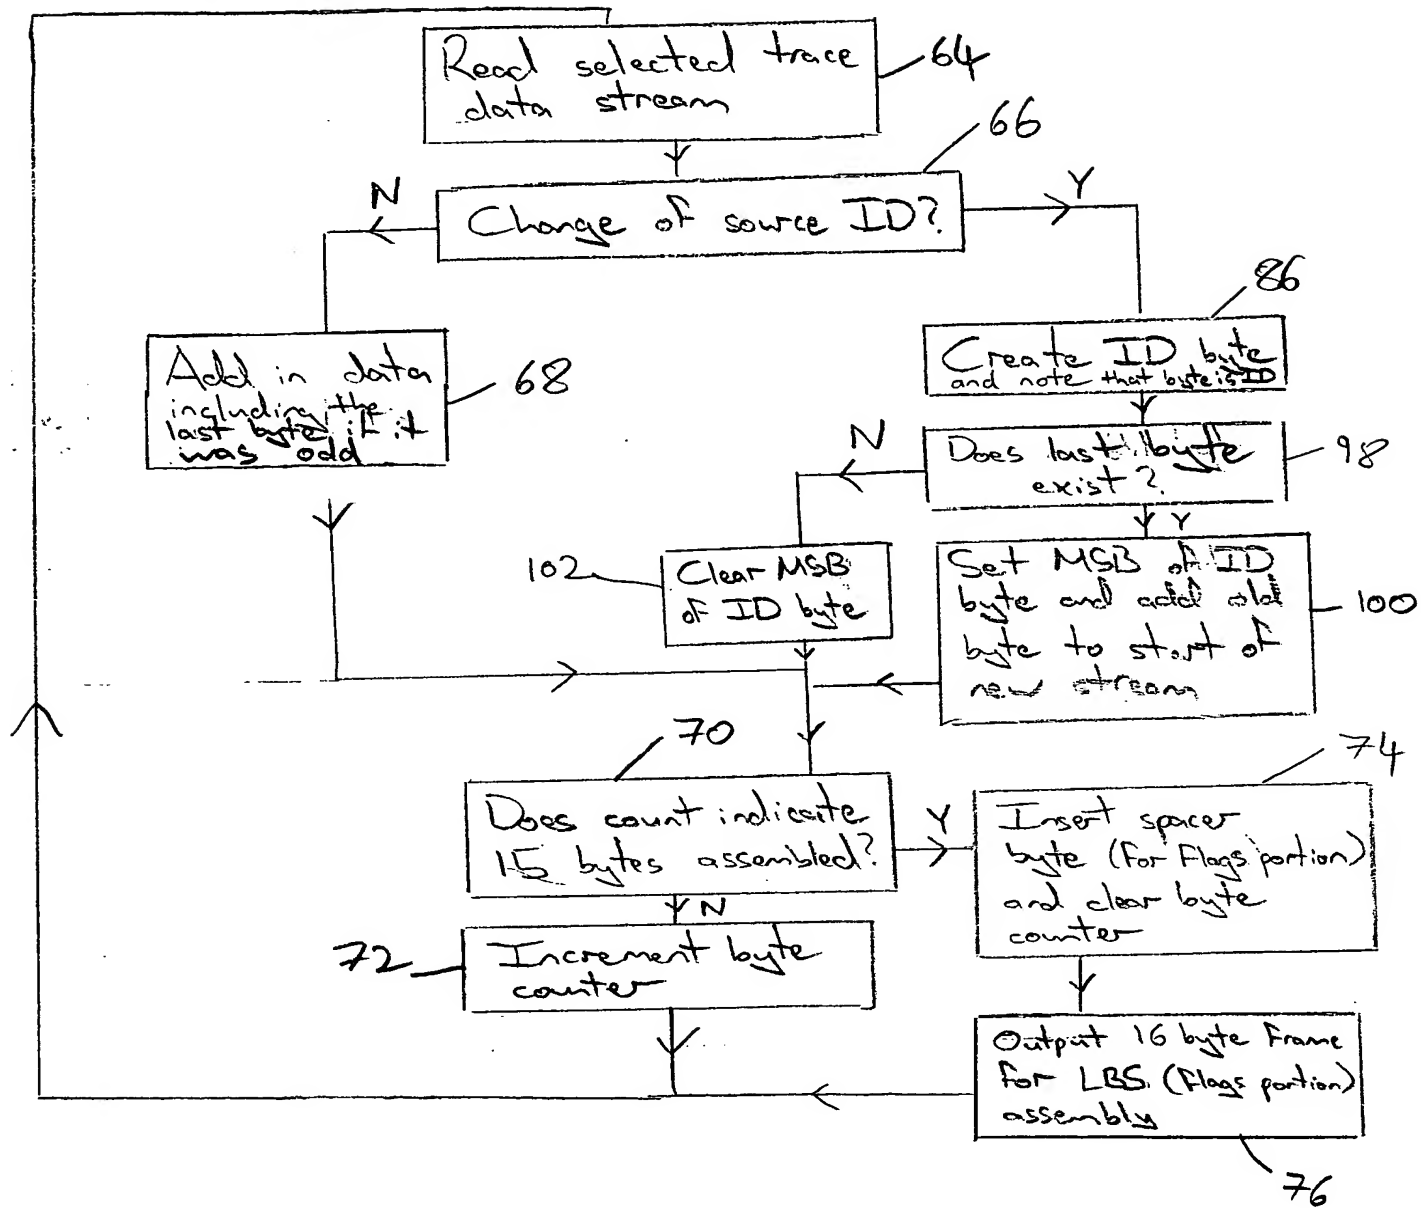 Read selected trace
data stream
64
66
N
Y
Change of source ID?
86
Add in data
including the
last byte if it
was odd
68
Create ID byte
and note that byte is ID
N
Does last byte
exist?
98
Y
102
Clear MSB
of ID byte
Set MSB of ID
byte and add old
byte to start of
new stream
100
70
74
Does count indicate
15 bytes assembled?
Y
Insert spacer
byte (for flags portion)
and clear byte
counter
N
72
Increment byte
counter
Output 16 byte frame
for LBS (flags portion)
assembly
76